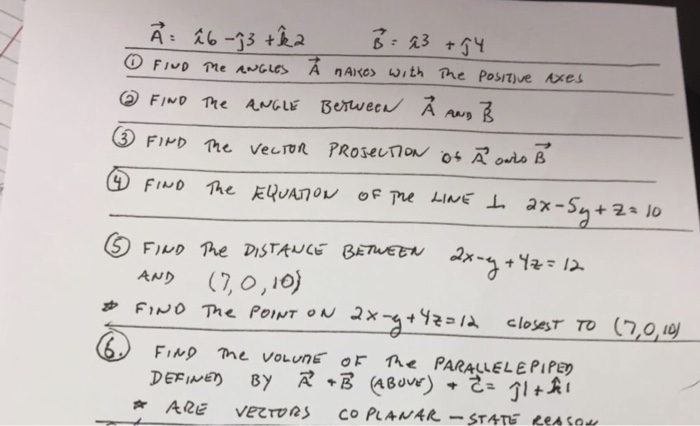 A⃗ = î6 - ĵ3 + k̂2 B⃗ = î3 + ĵ4
① FIND THE ANGLES A⃗ MAKES WITH THE POSITIVE AXES
② FIND THE ANGLE BETWEEN A⃗ AND B⃗
③ FIND THE VECTOR PROJECTION of A⃗ onto B⃗
④ FIND THE EQUATION OF THE LINE ⊥ 2x-5y+z=10
⑤ FIND THE DISTANCE BETWEEN 2x-y+4z=12
AND (7,0,10)
* FIND THE POINT ON 2x-y+4z=12 CLOSEST TO (7,0,10)
⑥. FIND THE VOLUME OF THE PARALLELEPIPED
DEFINED BY A⃗ + B⃗ (ABOVE) + C⃗ = ĵ1 + k̂1
* ARE VECTORS COPLANAR - STATE REASON